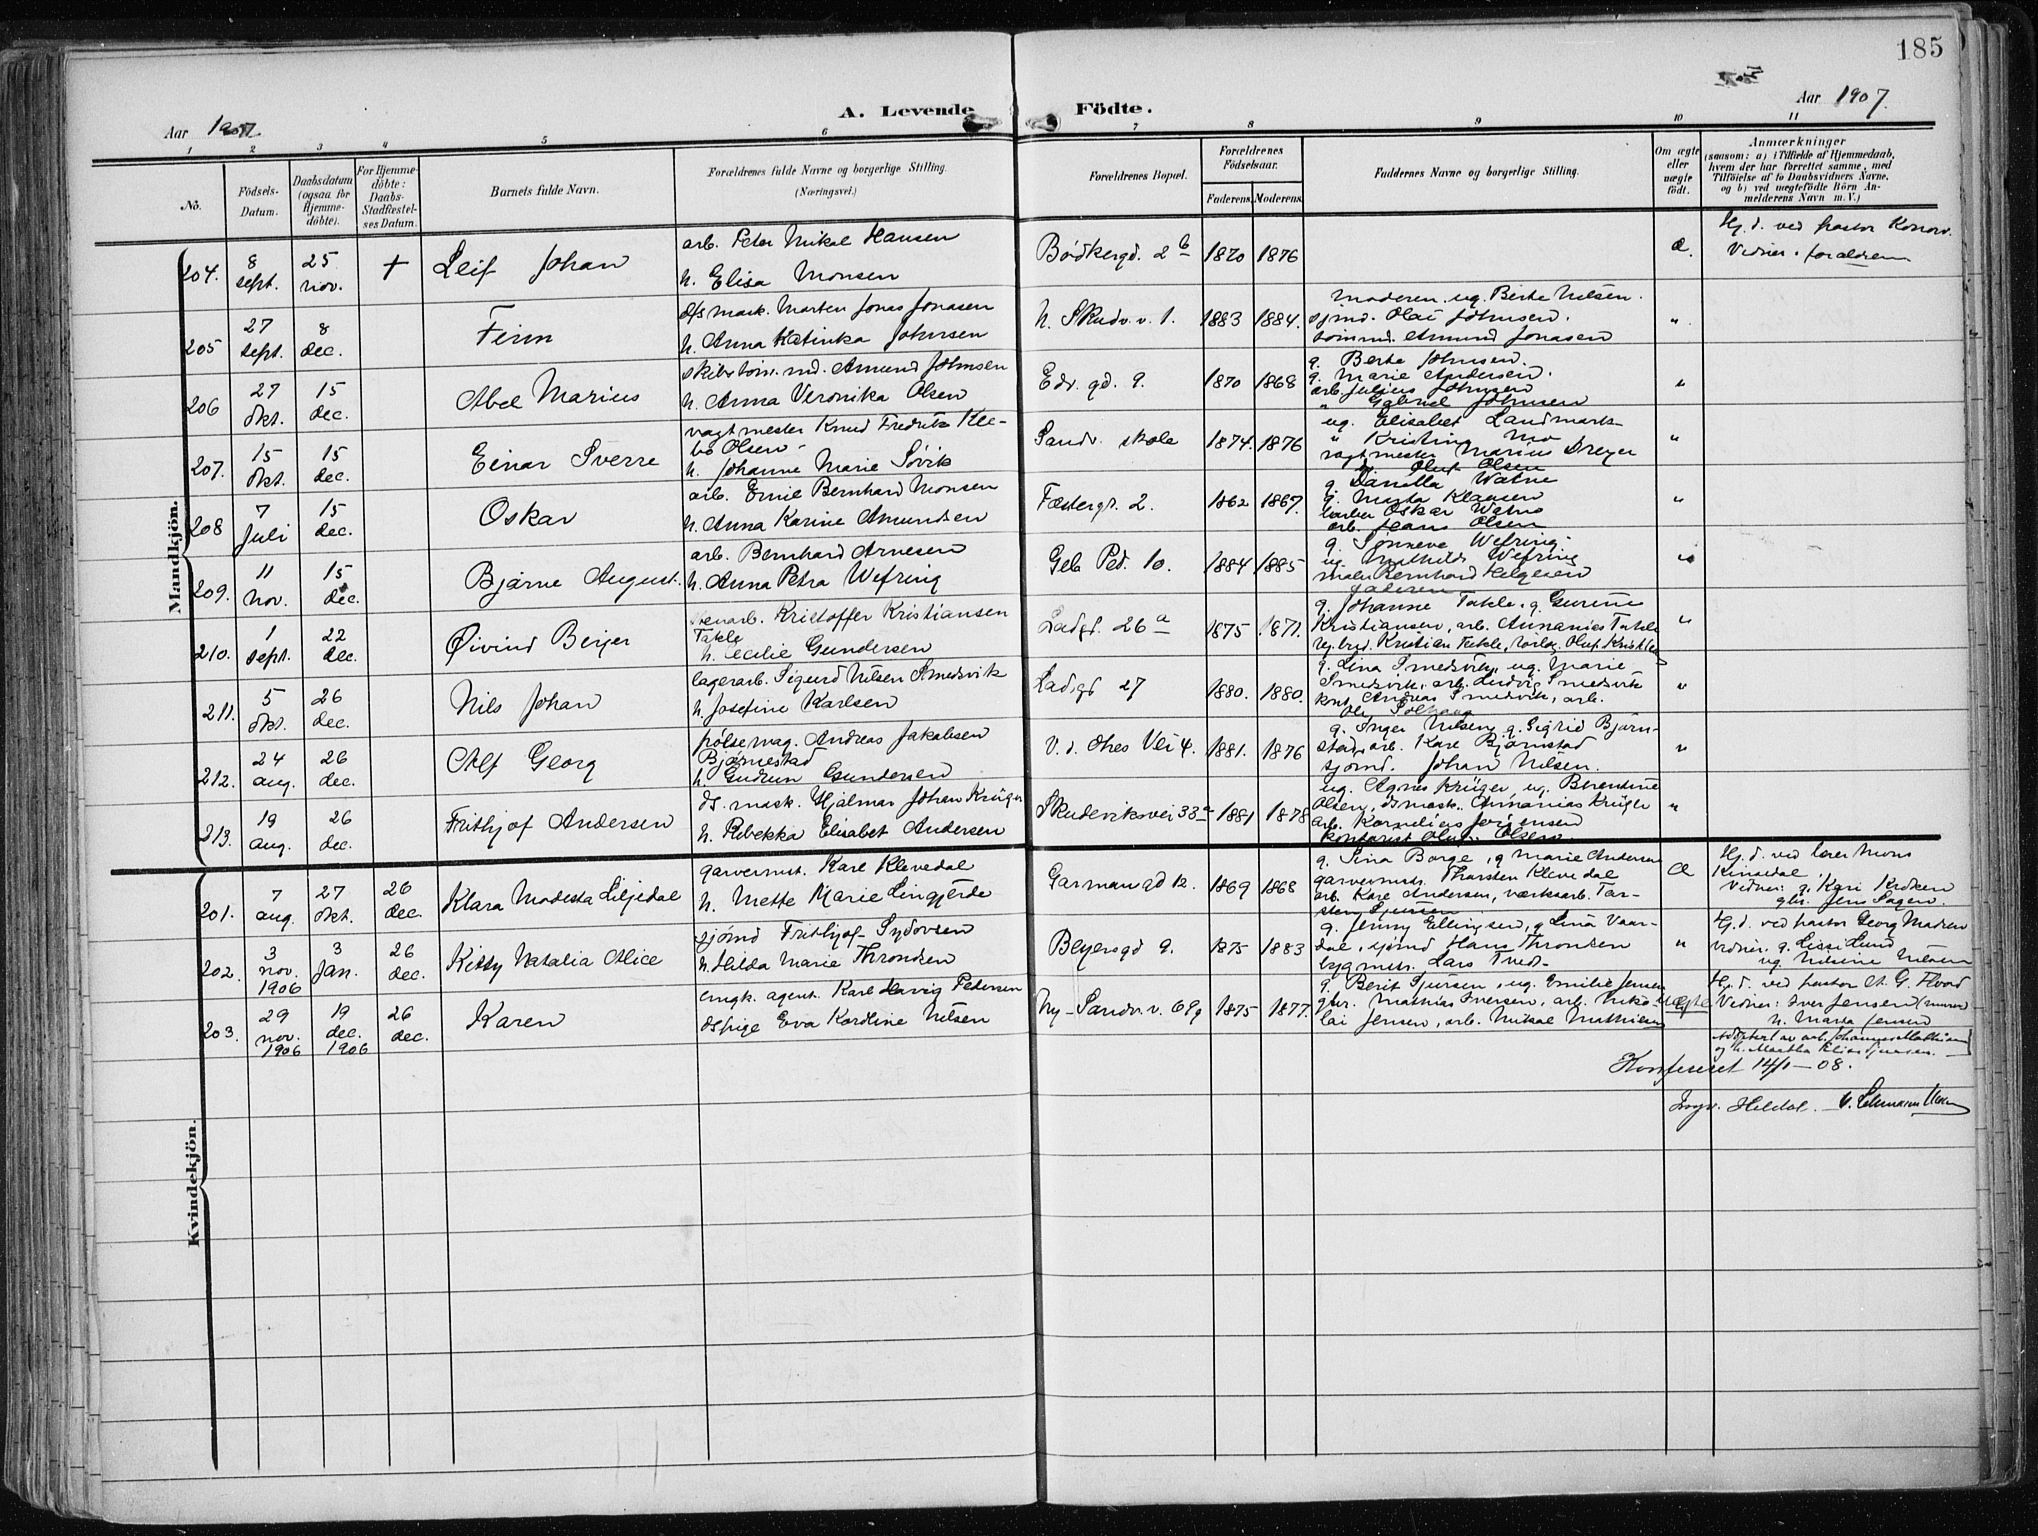 185
Aar 1907.
A. Levende Födte.
Aar 1907.
1 2 3 4 5 6 7 8 9 10 11
No.
Födsels-Datum.
Daabsdatum (ogsaa for Hjemmedöbte).
For Hjemmedöbte: Daabs-Stadfæstelses Datum.
Barnets fulde Navn.
Forældrenes fulde Navne og borgerlige Stilling. (Næringsvei.)
Forældrenes Bopæl.
Forældrenes Födselsaar.
Faderens. Moderens.
Faddernes Navne og borgerlige Stilling.
Om ægte eller uægte født.
Anmærkninger (saasom: a) i Tilfælde af Hjemmedaab, hvem der har forrettet samme, med Tilföielse af to Daabsvidners Navne, og b) ved uægtefödte Börn Anmelderens Navn m. V.)
Mandkjön.
204. 8 sept. 25 nov. + Leif Johan
arb. Peter Mikal Hansen
h. Elisa Monsen
Bødkergd. 2b 1870 1876
æ. Hj. d. ved pastor
Vidner: forældrene
205 27 sept. 8 dec. Finn
mask. Morten Jonas Jonasen
h. Anna Katinka Johnsen
N. Skudev. v. 1. 1883 1884.
Moderen, ug. Berte Nilsen.
sjmd. Olai Johnsen.
tømmd. Amund Jonasen
"
206 27 okt. 15 dec. Abel Marius
skibstøm. md. Amund Johnsen
h. Anna Veronika Olsen
Edv. gd. 9. 1870 1868
g. Berte Johnsen.
g. Marie Andersen.
arb. Julius Johnsen
" Gabriel Johnsen
"
207. 15 okt. 15 dec. Einar Sverre
vagtmester Knud Fredrik Klebo Olsen
h. Johanne Marie Søvik
Sandv. skole 1874. 1876
ug. Elisabet Landmark
" Kristine Mo
vagtmester Marius Dreyer
Oluf Olsen
"
208 7 Juli 15 dec. Oskar
arb. Emil Bernhard Monsen
h. Anna Karine Amundsen
Fæstergt. 2. 1862 1867.
g. Daniella Watne
g. Marta Klausen
barber Oskar Watne
arb. Jens Olsen
"
209. 11 nov. 15 dec. Bjarne August.
arb. Bernhard Arnesen
h. Anna Petra Wefring
Geb. Ped. 10. 1884 1885
g. Sønneve Wefring
ug. Mathilde Wefring
maler Bernhard Helgesen
faderen
"
210. 1 sept. 22 dec. Øivind Berger
Kristoffer Kristiansen Takle
h. Cecilie Gundersen
Ladgd. 26a 1875 1871.
g. Johanne Takle, g. Gurine
Kristiansen, arb. Annanias Takle
Kristian Takle, Oluf
"
211. 5 okt. 26 dec. Nils Johan
lagerarb. Sigurd Nilsen Smedsvik
h. Josefine Karlsen
Ladgd 27 1880. 1880.
g. Lina Smedsvik, ug. Marie
Smedsvik, arb. Ludvig Smedsvik
Andreas Smedsvik, arb.
Ole Solhaug
"
212. 24 aug. 26 dec. Alf Georg
pølsemag. Andreas Jakobsen
Bjørnestad
h. Gudrun Gundersen
V. d. Ohes Vei 4. 1881. 1876
g. Inger Nilsen, g. Sigrid Bjørn-
stad, arb. Karl Bjørnstad
sjømd. Johan Nilsen.
"
213. 19 aug. 26 dec. Frithjof Andersen
ds. mask. Hjalmar Johan Krüger
h. Rebekka Elisabet Andersen
Skudeviksvei 33a 1881 1878
ug. Agnes Krüger, ug. Berentine
Olsen, ds mask. Annanias Krüger
arb. Kornelius Jørgensen
kontorist Oluf Olsen
"
Kvindekjön.
201. 7 aug. 27 okt. 26 dec. Klara Modesta Liljedal
garvermst. Karl Klevedal
h. Mette Marie Lingjerde
Garmansgd 12. 1869 1868
g. Sina Borge, g Marie Andersen
garvermst. Thorsten Klevedal
arb. Karl Andersen, værksarb. Tor-
sten Sjursen
Æ
Hj. d. ved lærer Mons
Kinsedal.
Vidner: g. Kari
gbr. Jens
202. 3 nov. 1906 3 Jan. 26 dec. Kitty Natalia Alice
sjømd Frithjof Sydovsen
h. Hilda Marie Throndsen
Beyersgd 9. 1875 1883
g. Jenny Ellingsen, g Lina Vaar-
dal, sjømd Hans Thronsen
bygmstr. Lars Tvedt
"
Hj. d. ved pastor Georg Madsen
vidner: g. Lissi Lund
ug. Nilsine Nilsen
203. 29 nov. 1906 19 dec. 1906 26 dec. Karen
emgk. agent. Karl Hervig Pedersen
pige Eva Kordine Nilsen
Ny-Sandv. v. 69g 1875 1877.
g. Berit Sjursen, ug. Emilie Jensen
gbr. Mathias Iversen, arb. Niko-
lai Jensen, arb. Mikal Mathisen
uægte
Hj. d. ved pastor A. G.
Vidner: Iver Jensen (murer)
h. Marta Jensen
Adoptert av arb. Johannes Mathisen
og h. Martha Elise Sjursen.
Konfereret 14/1-08.
Ingv. Heldal.